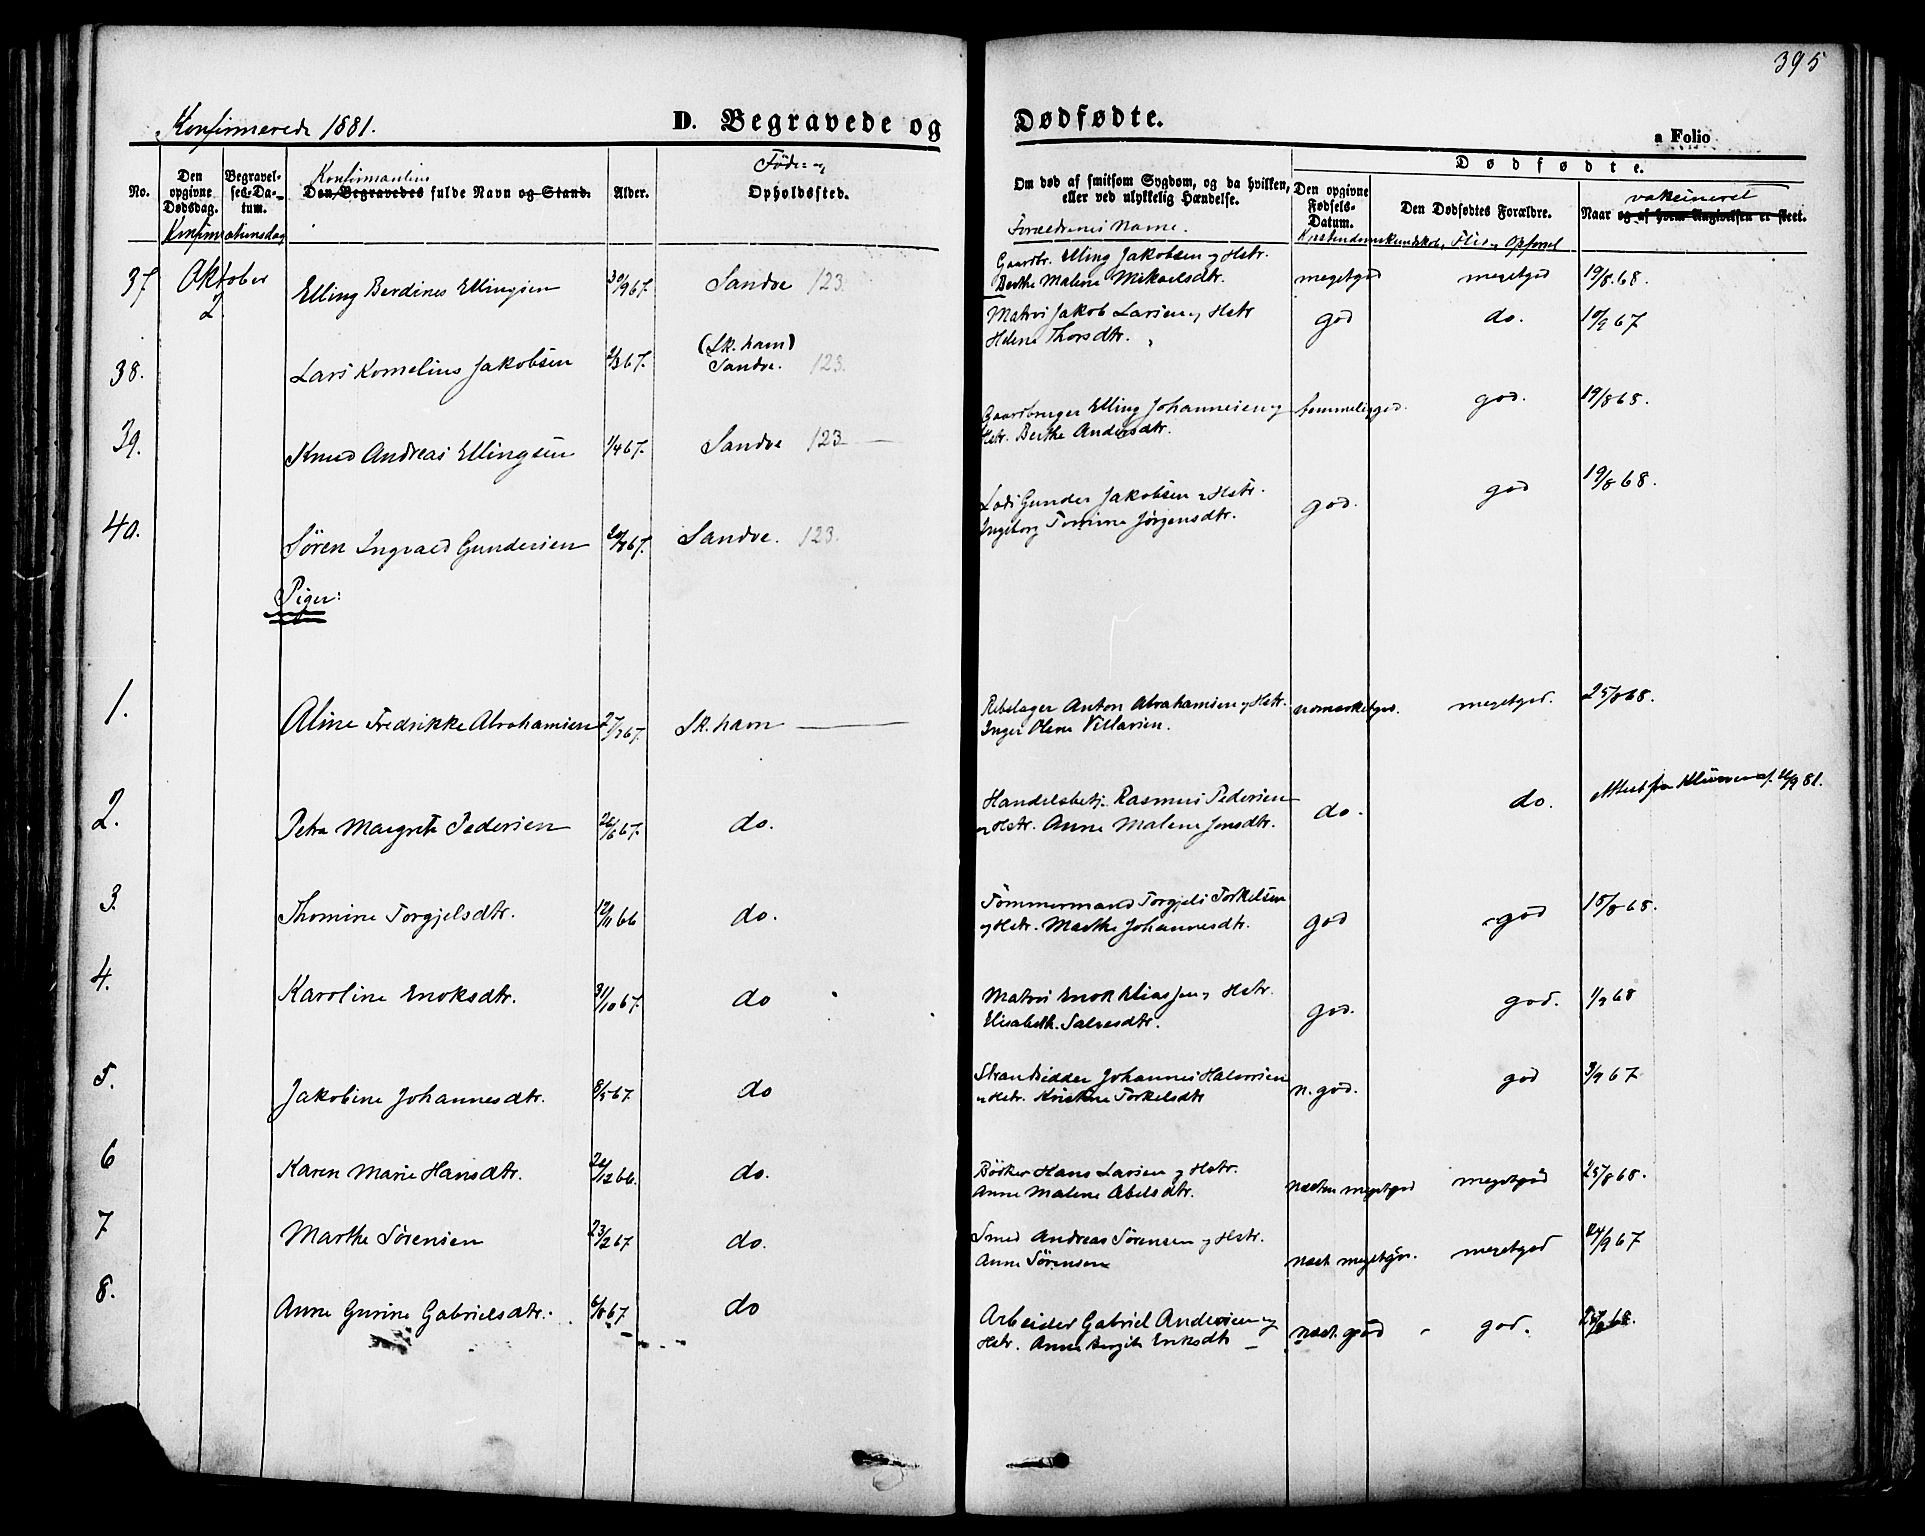 395
Konfirmerede 1881.
D. Begravede og Dødfødte.
a Folio
No.
Den opgivne Dødsdag.
Konfirmationsdag
Begravelses-Datum.
Konfirmantens
Den Begravedes fulde Navn og Stand.
Alder.
Føde- og
Opholdssted.
Om død af smitsom Sygdom, og da hvilken, eller ved ulykkelig Hændelse.
Forældrenes Navne.
Dødfødte.
Den opgivne Fødsels-Datum.
Den Dødfødtes Forældre.
Kristendomskundskab, Flid og Opførsel
vakcineret
Naar og af hvem Angivelsen er skeet.
37 Oktober 2 Elling Berdines Ellingsen 30/9 67. Sandve 123. Gaardbr. Elling Jakobsen og Hstr.
Berthe Malene Mikaelsdtr. megetgod megetgod 19/8.68.
38. Lars Kornelius Jakobsen 2/3 67. (Sk.havn) Sandve. 123. Matros Jakob Larsen og Hstr
Helene Thorsdtr. god do. 19/9 67
39. Knud Andreas Ellingsen 1/4 67. Sandve 123 Gaardbruger Elling Johannesen og
Hstr. Berthe Andersdtr. temmelig god. god. 19/8 68.
40. Søren Ingvald Gundersen 20/8 67. Sandve. 123. Lods Gunder Jakobsen og Hstr.
Ingeborg Tomine Jørgensdtr. god. god 19/8 68.
Piger:
1. Aline Fredrikke Abrahamsen 27/7 67. Sk.havn Rebslager Anton Abrahamsen og Hstr.
Inger Olene Villarsen. megetgod. 25/8 68.
2. Petra Margrete Pedersen 26/6 67. do. Handelsbetj. Rasmus Pedersen
og Hstr. Anne Malene Jensdtr. do. do. Attest fra 81.
3. Thomine Torgjelsdtr. 12/11 66 do. Tømmermand Torgjels Torkelsen
og Hstr. Marthe Johannesdtr. god god 18/8 68.
4. Karoline Enoksdtr. 31/10 67. do Matros Enok Eliassen og Hstr.
Elisabeth Salvesdtr. god. god. 1/9 68
5. Jakobine Johannesdtr. 8/5 67 do Strandsidder Johannes Halvorsen
og Hstr. Kristine Torkelsdtr n. god. god 3/9 67
6 Karen Marie Hansdtr. 26/12 66. do. Bødker Hans Larsen og Hstr.
Anne Malene Abelsdtr. næsten megetgod megetgod 25/8 68.
7 Marthe Sørensen 23/2 67 do. Smed Andreas Sørensen og Hstr.
Anne Sørensen næst. megetgod. megetgod 24/9 67
8. Anne Gurine Gabrielsdtr. 6/8 67 do Arbeider Gabriel Andersen og
Hstr. Anne Bergite Eriksdtr næst. god god. 68.